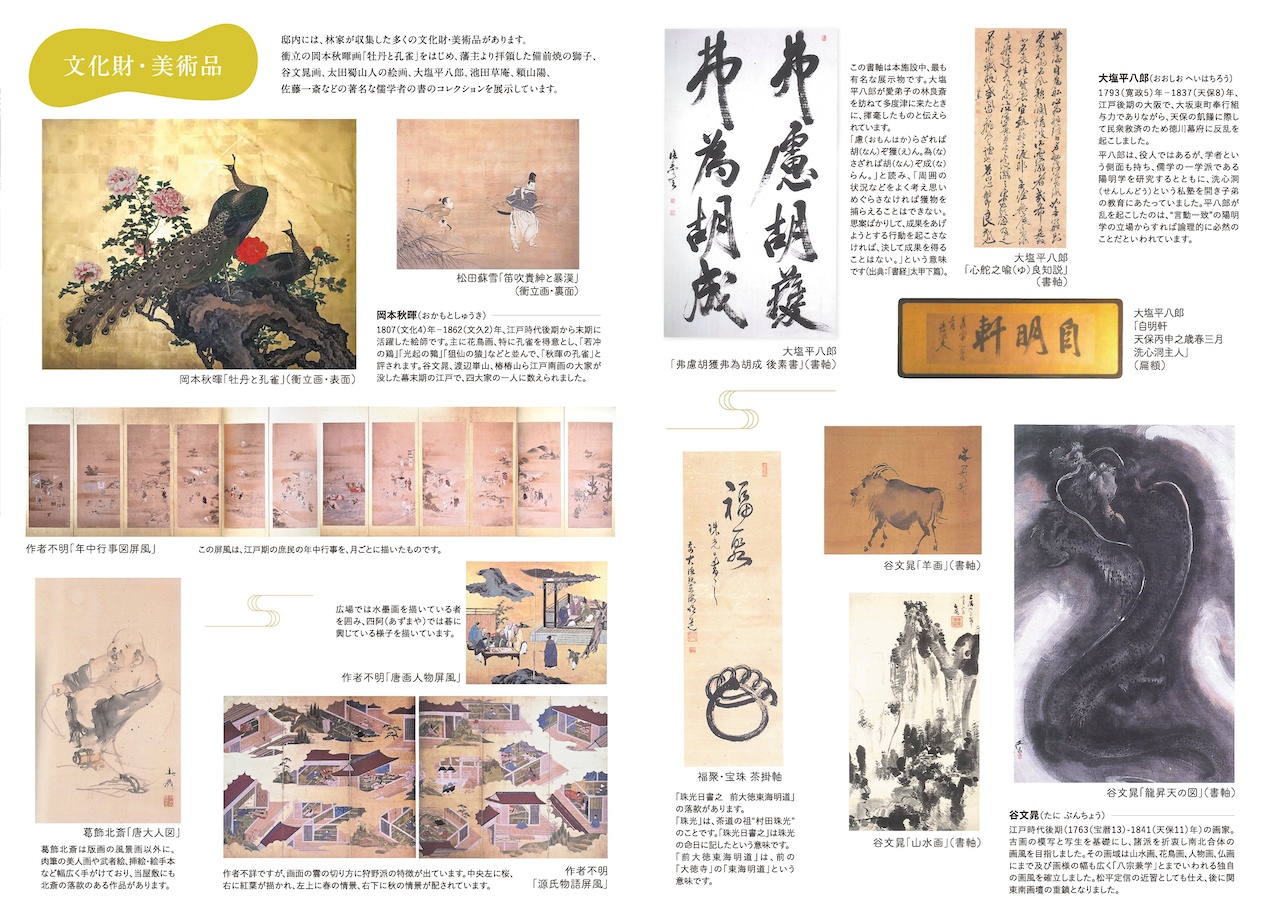 文化財・美術品
邸内には、林家が収集した多くの文化財・美術品があります。
衝立の岡本秋暉画「牡丹と孔雀」をはじめ、藩主より拝領した備前焼の獅子、
谷文晁画、太田蜀山人の絵画、大塩平八郎、池田草庵、頼山陽、
佐藤一斎などの著名な儒学者の書のコレクションを展示しています。
岡本秋暉「牡丹と孔雀」(衝立画・表面)
松田蘇雪「笛吹貴紳と暴漢」
(衝立画・裏面)
岡本秋暉(おかもとしゅうき)
1807(文化4)年−1862(文久2)年、江戸時代後期から末期に
活躍した絵師です。主に花鳥画、特に孔雀を得意とし、「若冲
の鶏」「光起の鶉」「狙仙の猿」などと並んで、「秋暉の孔雀」と
評されます。谷文晁、渡辺崋山、椿椿山ら江戸南画の大家が
没した幕末期の江戸で、四大家の一人に数えられました。
作者不明「年中行事図屏風」
この屏風は、江戸期の庶民の年中行事を、月ごとに描いたものです。
葛飾北斎「唐大人図」
葛飾北斎は版画の風景画以外に、
肉筆の美人画や武者絵、挿絵・絵手本
など幅広く手がけており、当屋敷にも
北斎の落款のある作品があります。
広場では水墨画を描いている者
を囲み、四阿(あずまや)では碁に
興じている様子を描いています。
作者不明「唐画人物屏風」
作者不詳ですが、画面の雲の切り方に狩野派の特徴が出ています。中央左に桜、
右に紅葉が描かれ、左上に春の情景、右下に秋の情景が配されています。
作者不明
「源氏物語屏風」
弗慮胡獲
弗為胡成
後素書
大塩平八郎
「弗慮胡獲弗為胡成 後素書」(書軸)
この書軸は本施設中、最も
有名な展示物です。大塩
平八郎が愛弟子の林良斎
を訪ねて多度津に来たとき
に、揮毫したものと伝えら
れています。
「慮(おもんはか)らざれば
胡(なん)ぞ獲(え)ん。為(な)
さざれば胡(なん)ぞ成(な)
らん。」と読み、「周囲の
状況などをよく考え思い
めぐらさなければ獲物を
捕らえることはできない。
思案ばかりして、成果をあげ
ようとする行動を起こさな
ければ、決して成果を得る
ことはない。」という意味
です(出典:「書経」太甲下篇)。
大塩平八郎
「心舵之喩(ゆ)良知説」
(書軸)
大塩平八郎(おおしお へいはちろう)
1793(寛政5)年−1837(天保8)年、
江戸後期の大阪で、大坂東町奉行組
与力でありながら、天保の飢饉に際し
て民衆救済のため徳川幕府に反乱を
起こしました。
平八郎は、役人ではあるが、学者とい
う側面も持ち、儒学の一学派である
陽明学を研究するとともに、洗心洞
(せんしんどう)という私塾を開き子弟
の教育にあたっていました。平八郎が
乱を起こしたのは、“言動一致”の陽明
学の立場からすれば論理的に必然の
ことだといわれています。
自明軒
大塩平八郎
「自明軒
天保丙申之歳春三月
洗心洞主人」
(扁額)
福聚
福聚・宝珠 茶掛軸
「珠光日書之 前大徳東海明道」
の落款があります。
「珠光」は、茶道の祖“村田珠光”
のことです。「珠光日書之」は珠光
の命日に記したという意味です。
「前大徳東海明道」は、前の
「大徳寺」の「東海明道」という
意味です。
谷文晁「羊画」(書軸)
谷文晁「山水画」(書軸)
谷文晁「龍昇天の図」(書軸)
谷文晁(たに ぶんちょう)
江戸時代後期(1763(宝暦13)-1841(天保11)年)の画家。
古画の模写と写生を基礎にし、諸派を折衷し南北合体の
画風を目指しました。その画域は山水画、花鳥画、人物画、仏画
にまで及び画様の幅も広く「八宗兼学」とまでいわれる独自
の画風を確立しました。松平定信の近習としても仕え、後に関
東南画壇の重鎮となりました。